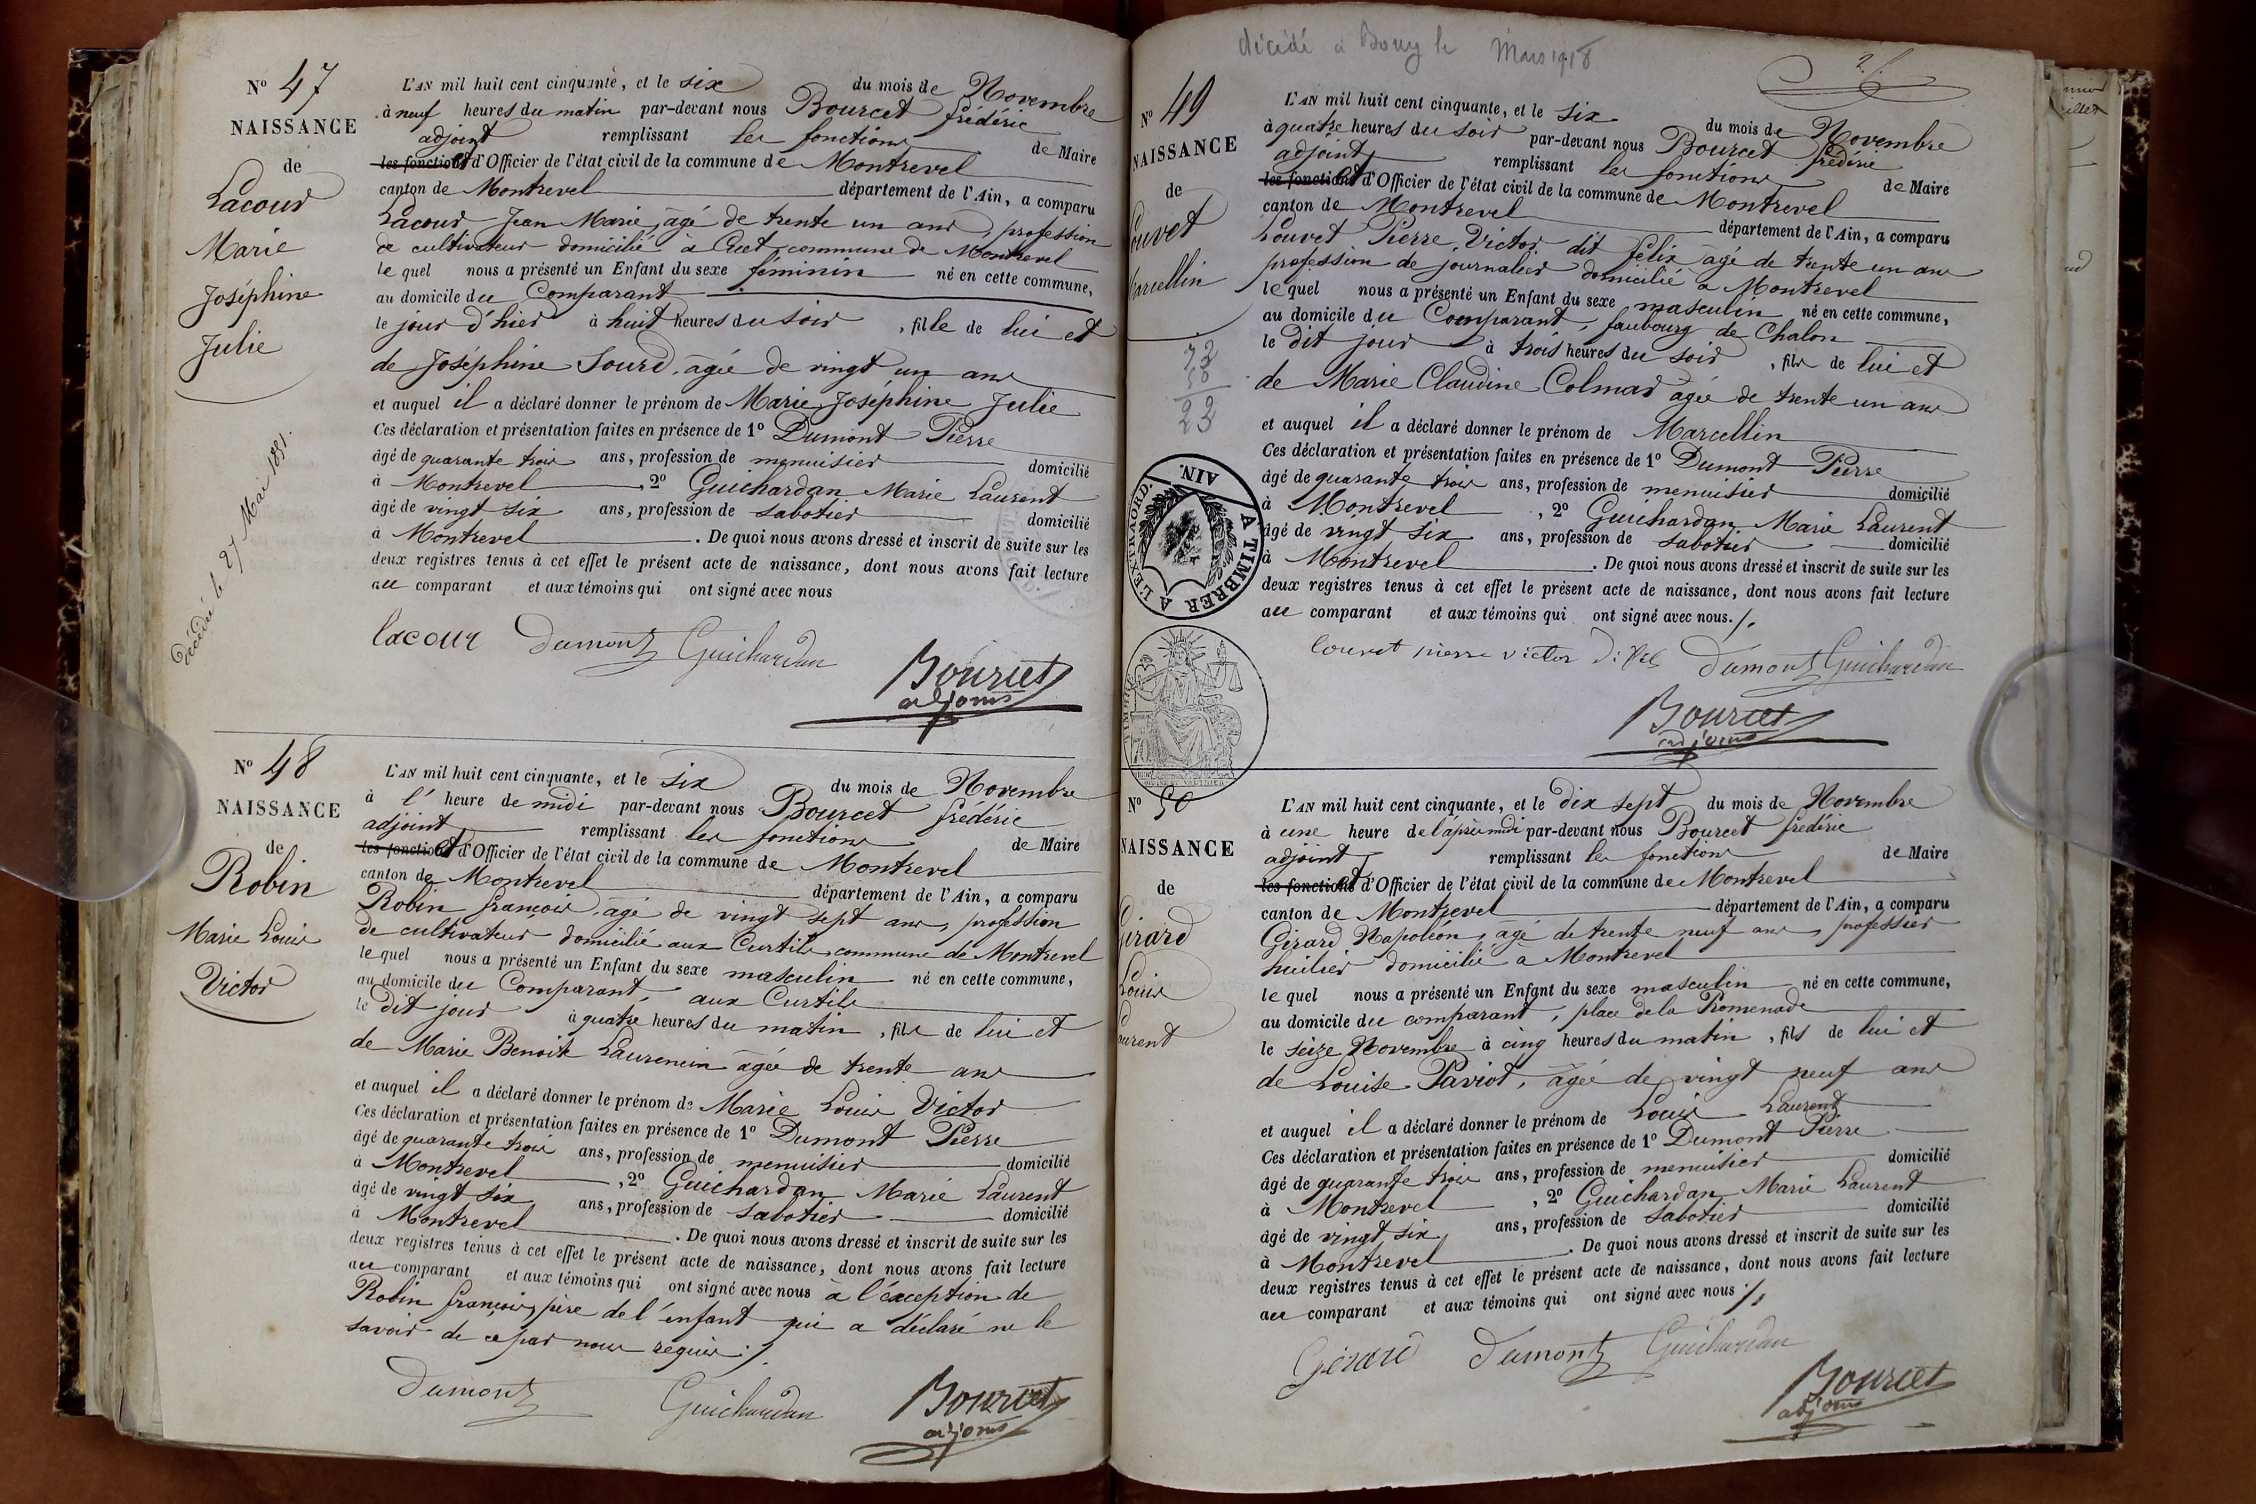 N° 47
NAISSANCE
de
Lacour
Marie
Joséphine
Julie
Décédée le 27 Mai 1851.
L'AN mil huit cent cinquante, et le six du mois de Novembre
à neuf heures du matin par-devant nous Bourcet frédéric
adjoint remplissant les fonctions de Maire
les fonctions et d'Officier de l'état civil de la commune de Montrevel
canton de Montrevel département de l'Ain, a comparu
Lacour Jean Marie, âgé de trente un ans, profession
de cultivateur domicilié à Cuet, commune de Montrevel
le quel nous a présenté un Enfant du sexe féminin né en cette commune,
au domicile du Comparant
le jour d'hier à huit heures du soir, fille de lui et
de Joséphine Sourd, agée de vingt un ans
et auquel il a déclaré donner le prénom de Marie Joséphine Julie
Ces déclaration et présentation faites en présence de 1° Dumont Pierre
âgé de quarante trois ans, profession de menuisier domicilié
à Montrevel, 2° Guichardan Marie Laurent
âgé de vingt six ans, profession de sabotier domicilié
à Montrevel. De quoi nous avons dressé et inscrit de suite sur les
deux registres tenus à cet effet le présent acte de naissance, dont nous avons fait lecture
au comparant et aux témoins qui ont signé avec nous
lacour Dumont Guichardan
Bourcet
adjoint
N° 48
NAISSANCE
de
Robin
Marie Louis
Victor
L'AN mil huit cent cinquante, et le six du mois de Novembre
à l' heure de midi par-devant nous Bourcet frédéric
adjoint remplissant les fonctions de Maire
les fonctions et d'Officier de l'état civil de la commune de Montrevel
canton de Montrevel département de l'Ain, a comparu
Robin françois, âgé de vingt sept ans, profession
de cultivateur domicilié aux Curtils, commune de Montrevel
le quel nous a présenté un Enfant du sexe masculin né en cette commune,
au domicile du Comparant, aux Curtils
le dit jour à quatre heures du matin, fils de lui et
de Marie Benoite Laurencin agée de trente ans
et auquel il a déclaré donner le prénom de Marie Louis Victor
Ces déclaration et présentation faites en présence de 1° Dumont Pierre
âgé de quarante trois ans, profession de menuisier domicilié
à Montrevel, 2° Guichardan Marie Laurent
âgé de vingt six ans, profession de sabotier domicilié
à Montrevel. De quoi nous avons dressé et inscrit de suite sur les
deux registres tenus à cet effet le présent acte de naissance, dont nous avons fait lecture
au comparant et aux témoins qui ont signé avec nous à l'éxception de
Robin françois, père de l'enfant qui a déclaré ne le
savoir de ce par nous requis ./.
Dumont Guichardan Bourcet
adjoint
décédé à Bouy le Mars 1918
N° 49
NAISSANCE
de
Louvet
Marcellin
72
50
22
A L'EXTRAORD. AIN. A TIMBRER
L'AN mil huit cent cinquante, et le six du mois de Novembre
à quatre heures du soir par-devant nous Bourcet frédéric
adjoint remplissant les fonctions de Maire
les fonctions et d'Officier de l'état civil de la commune de Montrevel
canton de Montrevel département de l'Ain, a comparu
Louvet Pierre Victor dit félix âgé de trente un ans
profession de journalier domicilié à Montrevel
le quel nous a présenté un Enfant du sexe masculin né en cette commune,
au domicile du Comparant, faubourg de Chalon
le dit jour à trois heures du soir, fils de lui et
de Marie Claudine Colmar agée de trente un ans
et auquel il a déclaré donner le prénom de Marcellin
Ces déclaration et présentation faites en présence de 1° Dumont Pierre
âgé de quarante trois ans, profession de menuisier domicilié
à Montrevel, 2° Guichardan Marie Laurent
âgé de vingt six ans, profession de sabotier domicilié
à Montrevel. De quoi nous avons dressé et inscrit de suite sur les
deux registres tenus à cet effet le présent acte de naissance, dont nous avons fait lecture
au comparant et aux témoins qui ont signé avec nous. /.
Louvet pierre victor Dumont Guichardan
Bourcet
adjoint
N° 50
NAISSANCE
de
Girard
Louis
Laurent
L'AN mil huit cent cinquante, et le dix sept du mois de Novembre
à une heure de l'après midi par-devant nous Bourcet frédéric
adjoint remplissant les fonctions de Maire
les fonctions et d'Officier de l'état civil de la commune de Montrevel
canton de Montrevel département de l'Ain, a comparu
Girard Napoléon, âgé de trente neuf ans, profession
huilier domicilié à Montrevel
le quel nous a présenté un Enfant du sexe masculin né en cette commune,
au domicile du comparant, place de la Promenade
le seize Novembre à cinq heures du matin, fils de lui et
de Louise Paviot, âgée de vingt neuf ans
et auquel il a déclaré donner le prénom de Louis Laurent
Ces déclaration et présentation faites en présence de 1° Dumont Pierre
âgé de quarante trois ans, profession de menuisier domicilié
à Montrevel, 2° Guichardan Marie Laurent
âgé de vingt six ans, profession de sabotier domicilié
à Montrevel. De quoi nous avons dressé et inscrit de suite sur les
deux registres tenus à cet effet le présent acte de naissance, dont nous avons fait lecture
au comparant et aux témoins qui ont signé avec nous ./.
Gérard Dumont Guichardan
Bourcet
adjoint